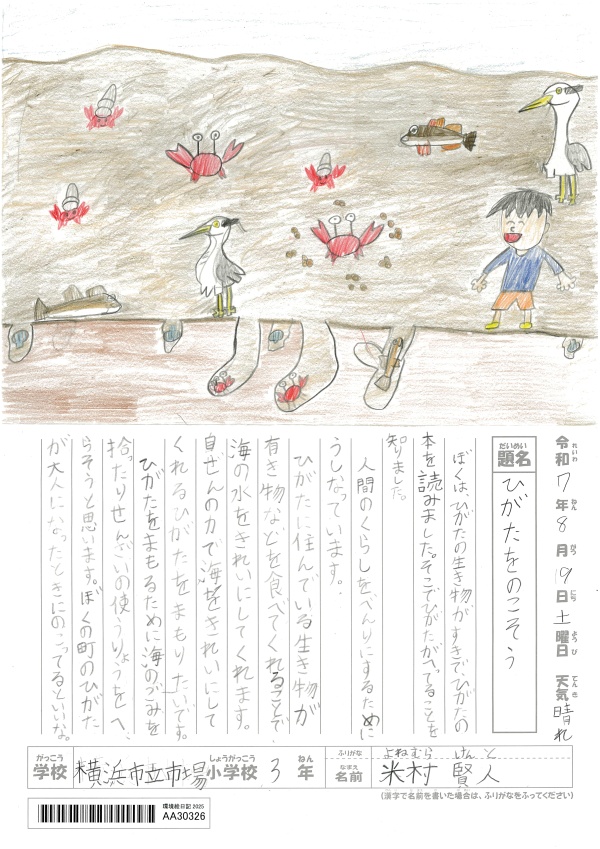 令和7年8月19日土曜日 天気晴れ
れいわ ねん がつ にち ようび てんき
だいめい
題名 ひがたをのこそう
ぼくは、ひがたの生き物がすきでひがたの
本を読みました。そこでひがたがへってることを
知りました。
人間のくらしをべんりにするために
うしなっています。
ひがたに住んでいる生き物が
有き物などを食べてくれることで
海の水をきれいにしてくれます。
自ぜんの力で海をきれいにして
くれるひがたをまもりたいです。
ひがたをまもるために海のごみを
拾ったりせんざいの使うりょうをへ
らそうと思います。ぼくの町のひがた
が大人になったときにのこってるといいな。
がっこう しょうがっこう ねん
学校 横浜市立市場小学校 3年
ふりがな よねむら けんと
なまえ
名前 米村 賢人
(漢字で名前を書いた場合は、ふりがなをふってください)
環境絵日記 2025
AA30326